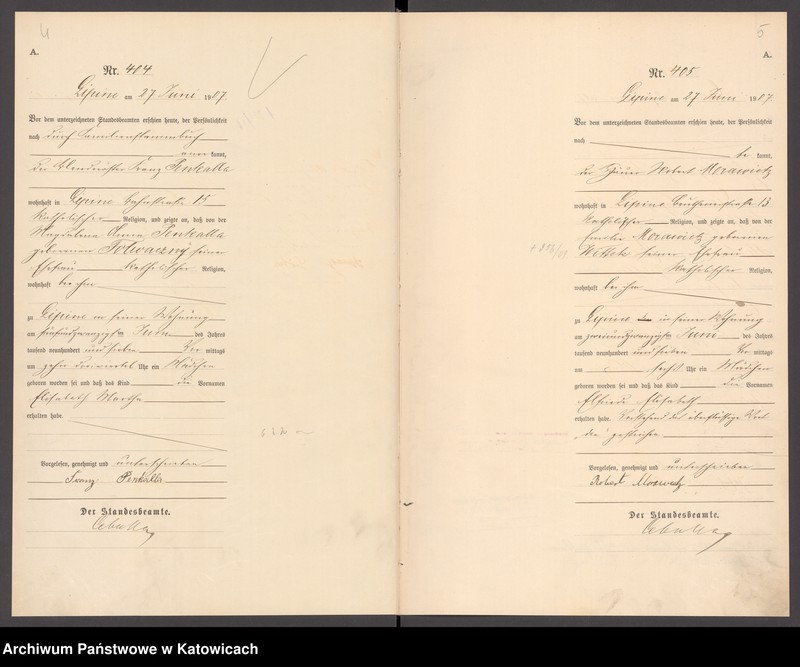 4
A.
Nr. 404
Lipine am 27 Juni 1907.
Vor dem unterzeichneten Standesbeamten erschien heute, der Persönlichkeit
nach durch Familienstammbuch
aner kannt,
der Franz Penkalla
wohnhaft in Lipine Bahnstraße 15
katholischer Religion, und zeigte an, daß von der
Magdalena Anna Penkalla
geborenen seiner
Ehefrau katholischer Religion,
wohnhaft bei ihm
zu Lipine in seiner Wohnung
am fünfundzwanzigsten Juni des Jahres
tausend neunhundert und sieben Vor mittags
am zehn dreiviertel Uhr ein Mädchen
geboren worden sei und daß das Kind die Vornamen
Elisabeth Martha
erhalten habe.
Vorgelesen, genehmigt und unterschrieben
Franz Penkalla
Der Standesbeamte.
5
A.
Nr. 405
Lipine am 27 Juni 1907
Vor dem unterzeichneten Standesbeamten erschien heute, der Persönlichkeit
nach
be kannt,
der Häuer Robert Morawietz
wohnhaft in Lipine Beuthenerstraße 13
katholischer Religion, und zeigte an, daß von der
Emilie Morawietz geborenen
seiner Ehefrau
katholischer Religion,
wohnhaft bei ihm
zu Lipine in seiner Wohnung
am zweiundzwanzigsten Juni des Jahres
tausend neunhundert und sieben Vor mittags
um sechs Uhr ein Mädchen
geboren worden sei und daß das Kind die Vornamen
Elfriede Elisabeth
erhalten habe. Vorstehend das überflüssige Wort
"die" gestrichen
Vorgelesen, genehmigt und unterschrieben
Robert Morawietz
Der Standesbeamte.
Archiwum Państwowe w Katowicach